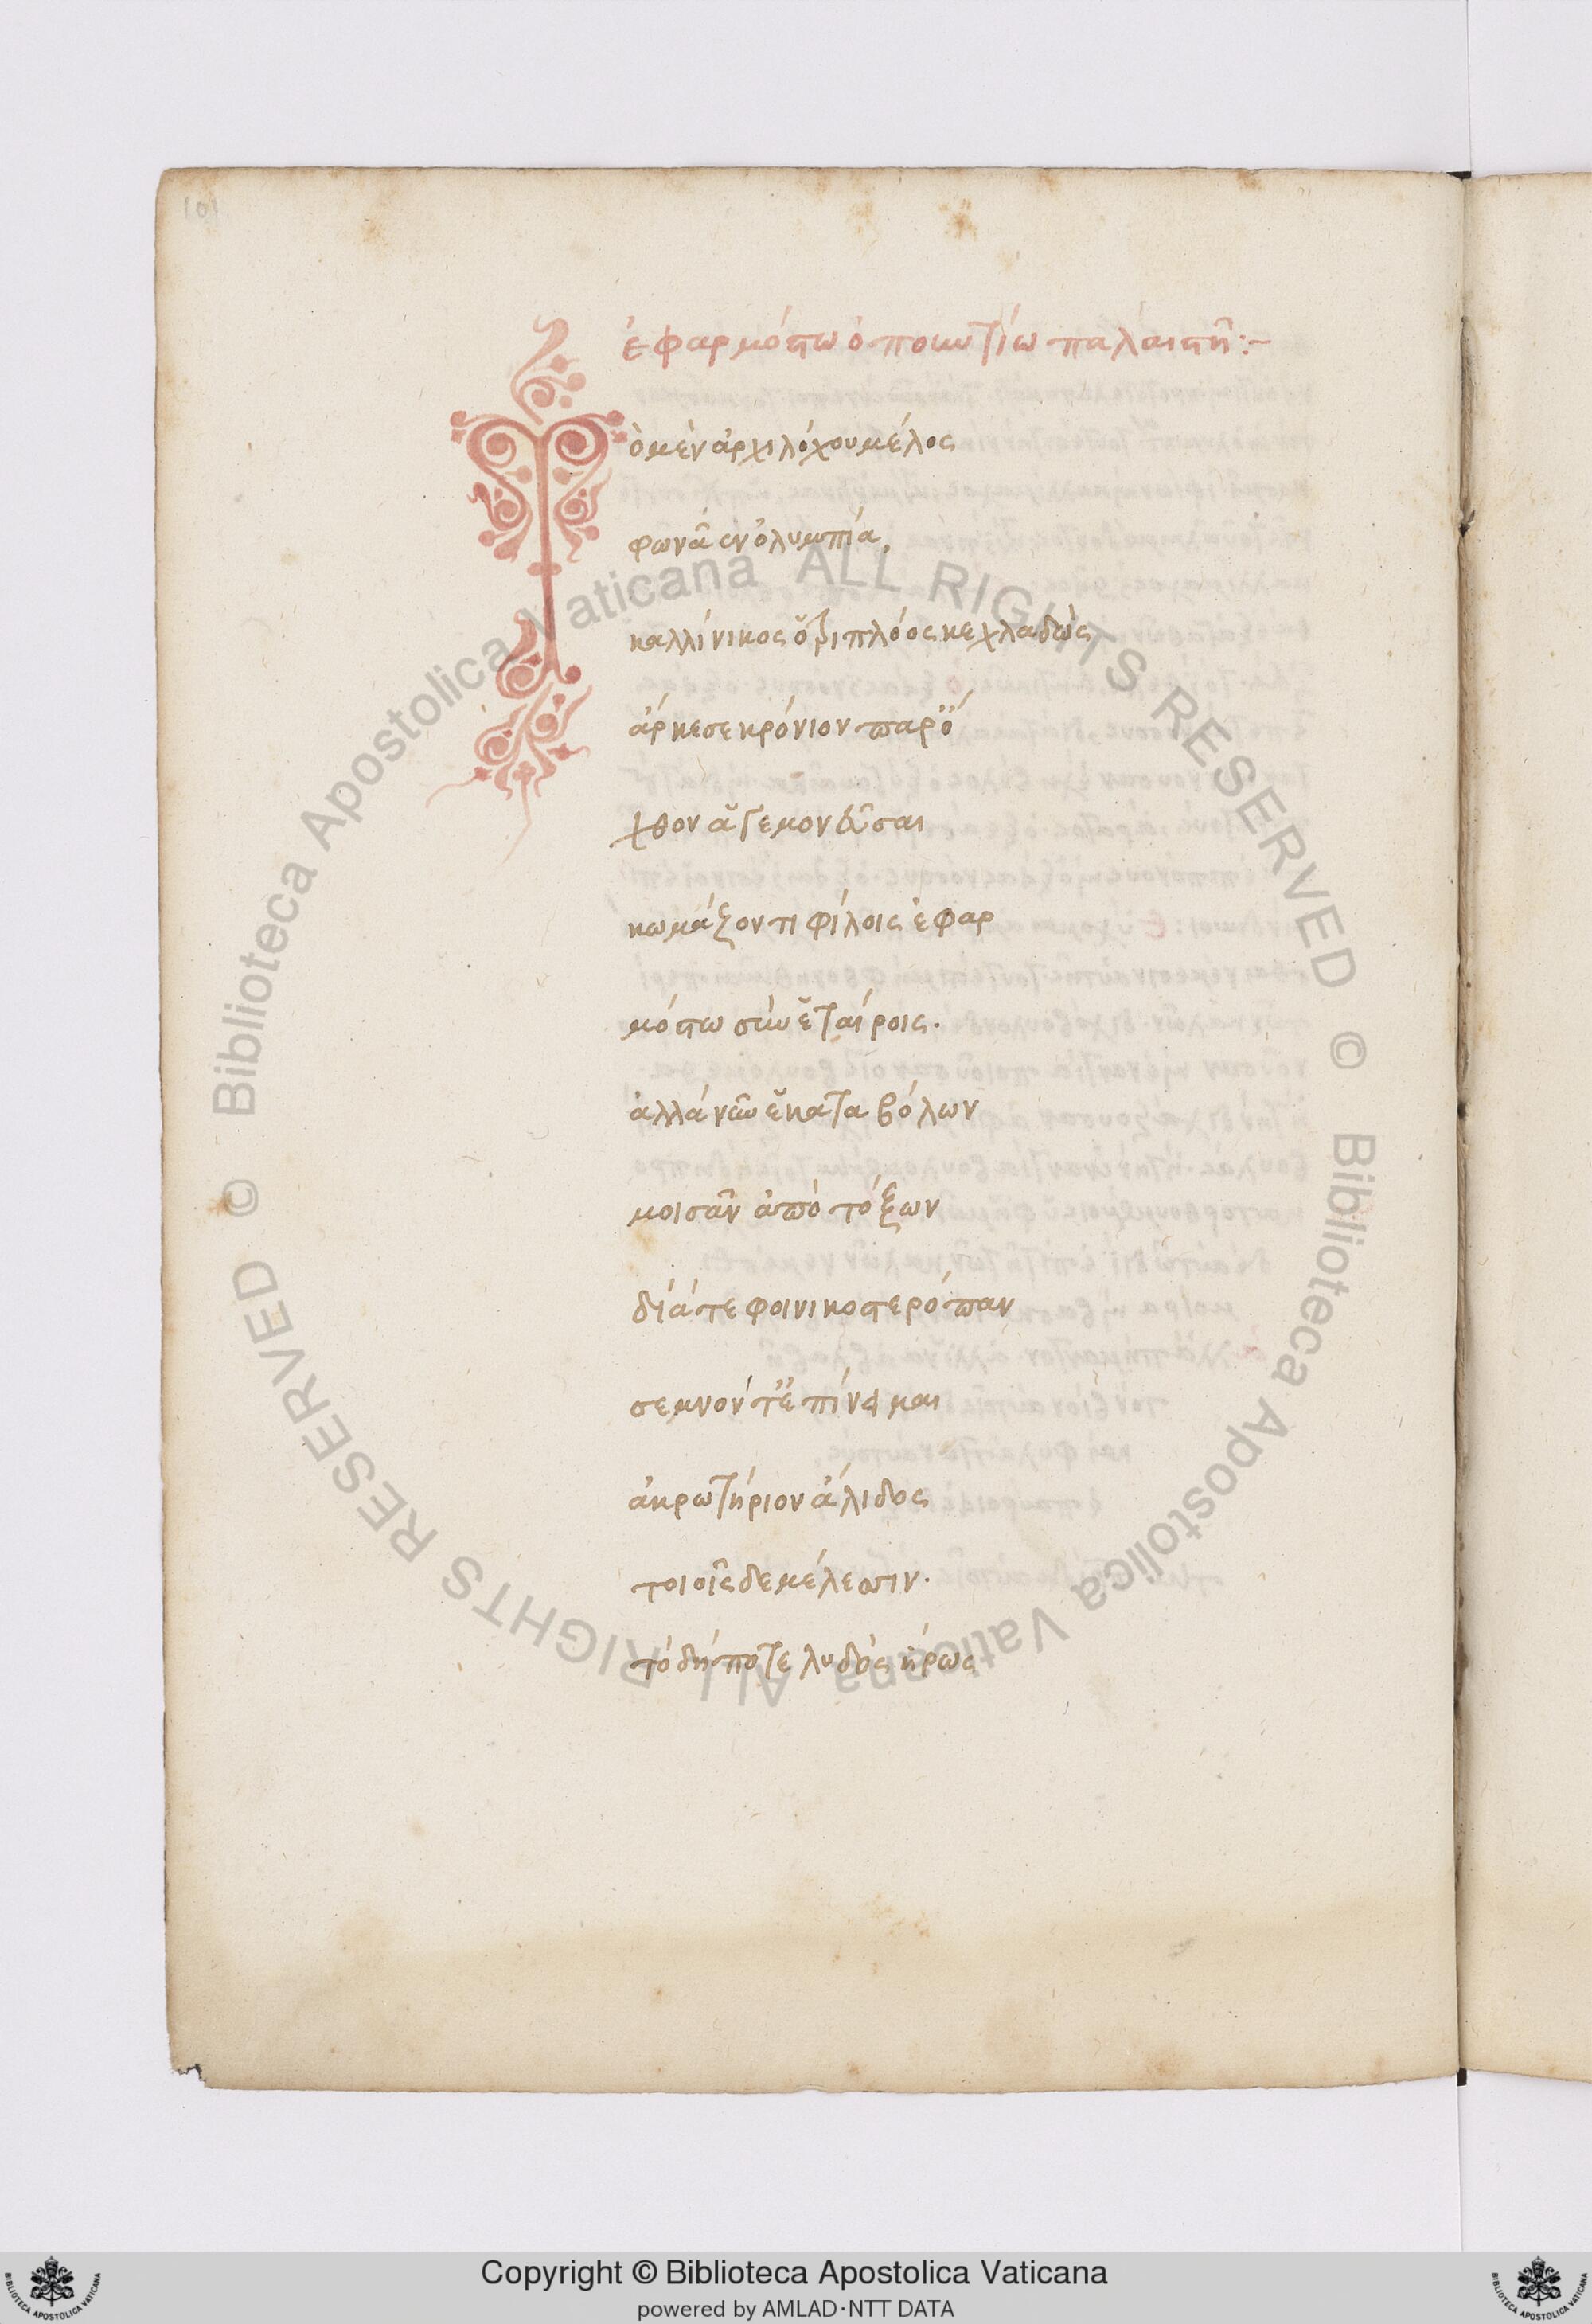 101
ἐφαρμόστω ὁποιωτίω παλαιστῆ:~
Τὸ μὲν ἀρχιλόχου μέλος
φωνᾶεν ὀλυμπία,
καλλίνικος ὅτριπλόος κεχλαδὼς
ἄρκεσε κρόνιον παρ' ὄ
χθον ἁγεμονεῦσαι
κωμάζοντι φίλοις ἐφαρ
μόστω σὺν ἑταίροις.
ἀλλὰ νῦν ἑκαταβόλων
μοισᾶν ἀπὸ τόξων
δία τε φοινικοστερόπαν
σεμνόν τ' ἐπίνειμαι
ἀκρωτήριον ἄλιδος
τοιοῖσδε μέλεσσιν.
τὸ δή ποτε λυδὸς ἥρως
© Biblioteca Apostolica Vaticana ALL RIGHTS RESERVED © Biblioteca Apostolica Vaticana ALL RIGHTS RESERVED
Copyright © Biblioteca Apostolica Vaticana
powered by AMLAD·NTT DATA
BIBLIOTECA APOSTOLICA VATICANA
BIBLIOTECA APOSTOLICA VATICANA